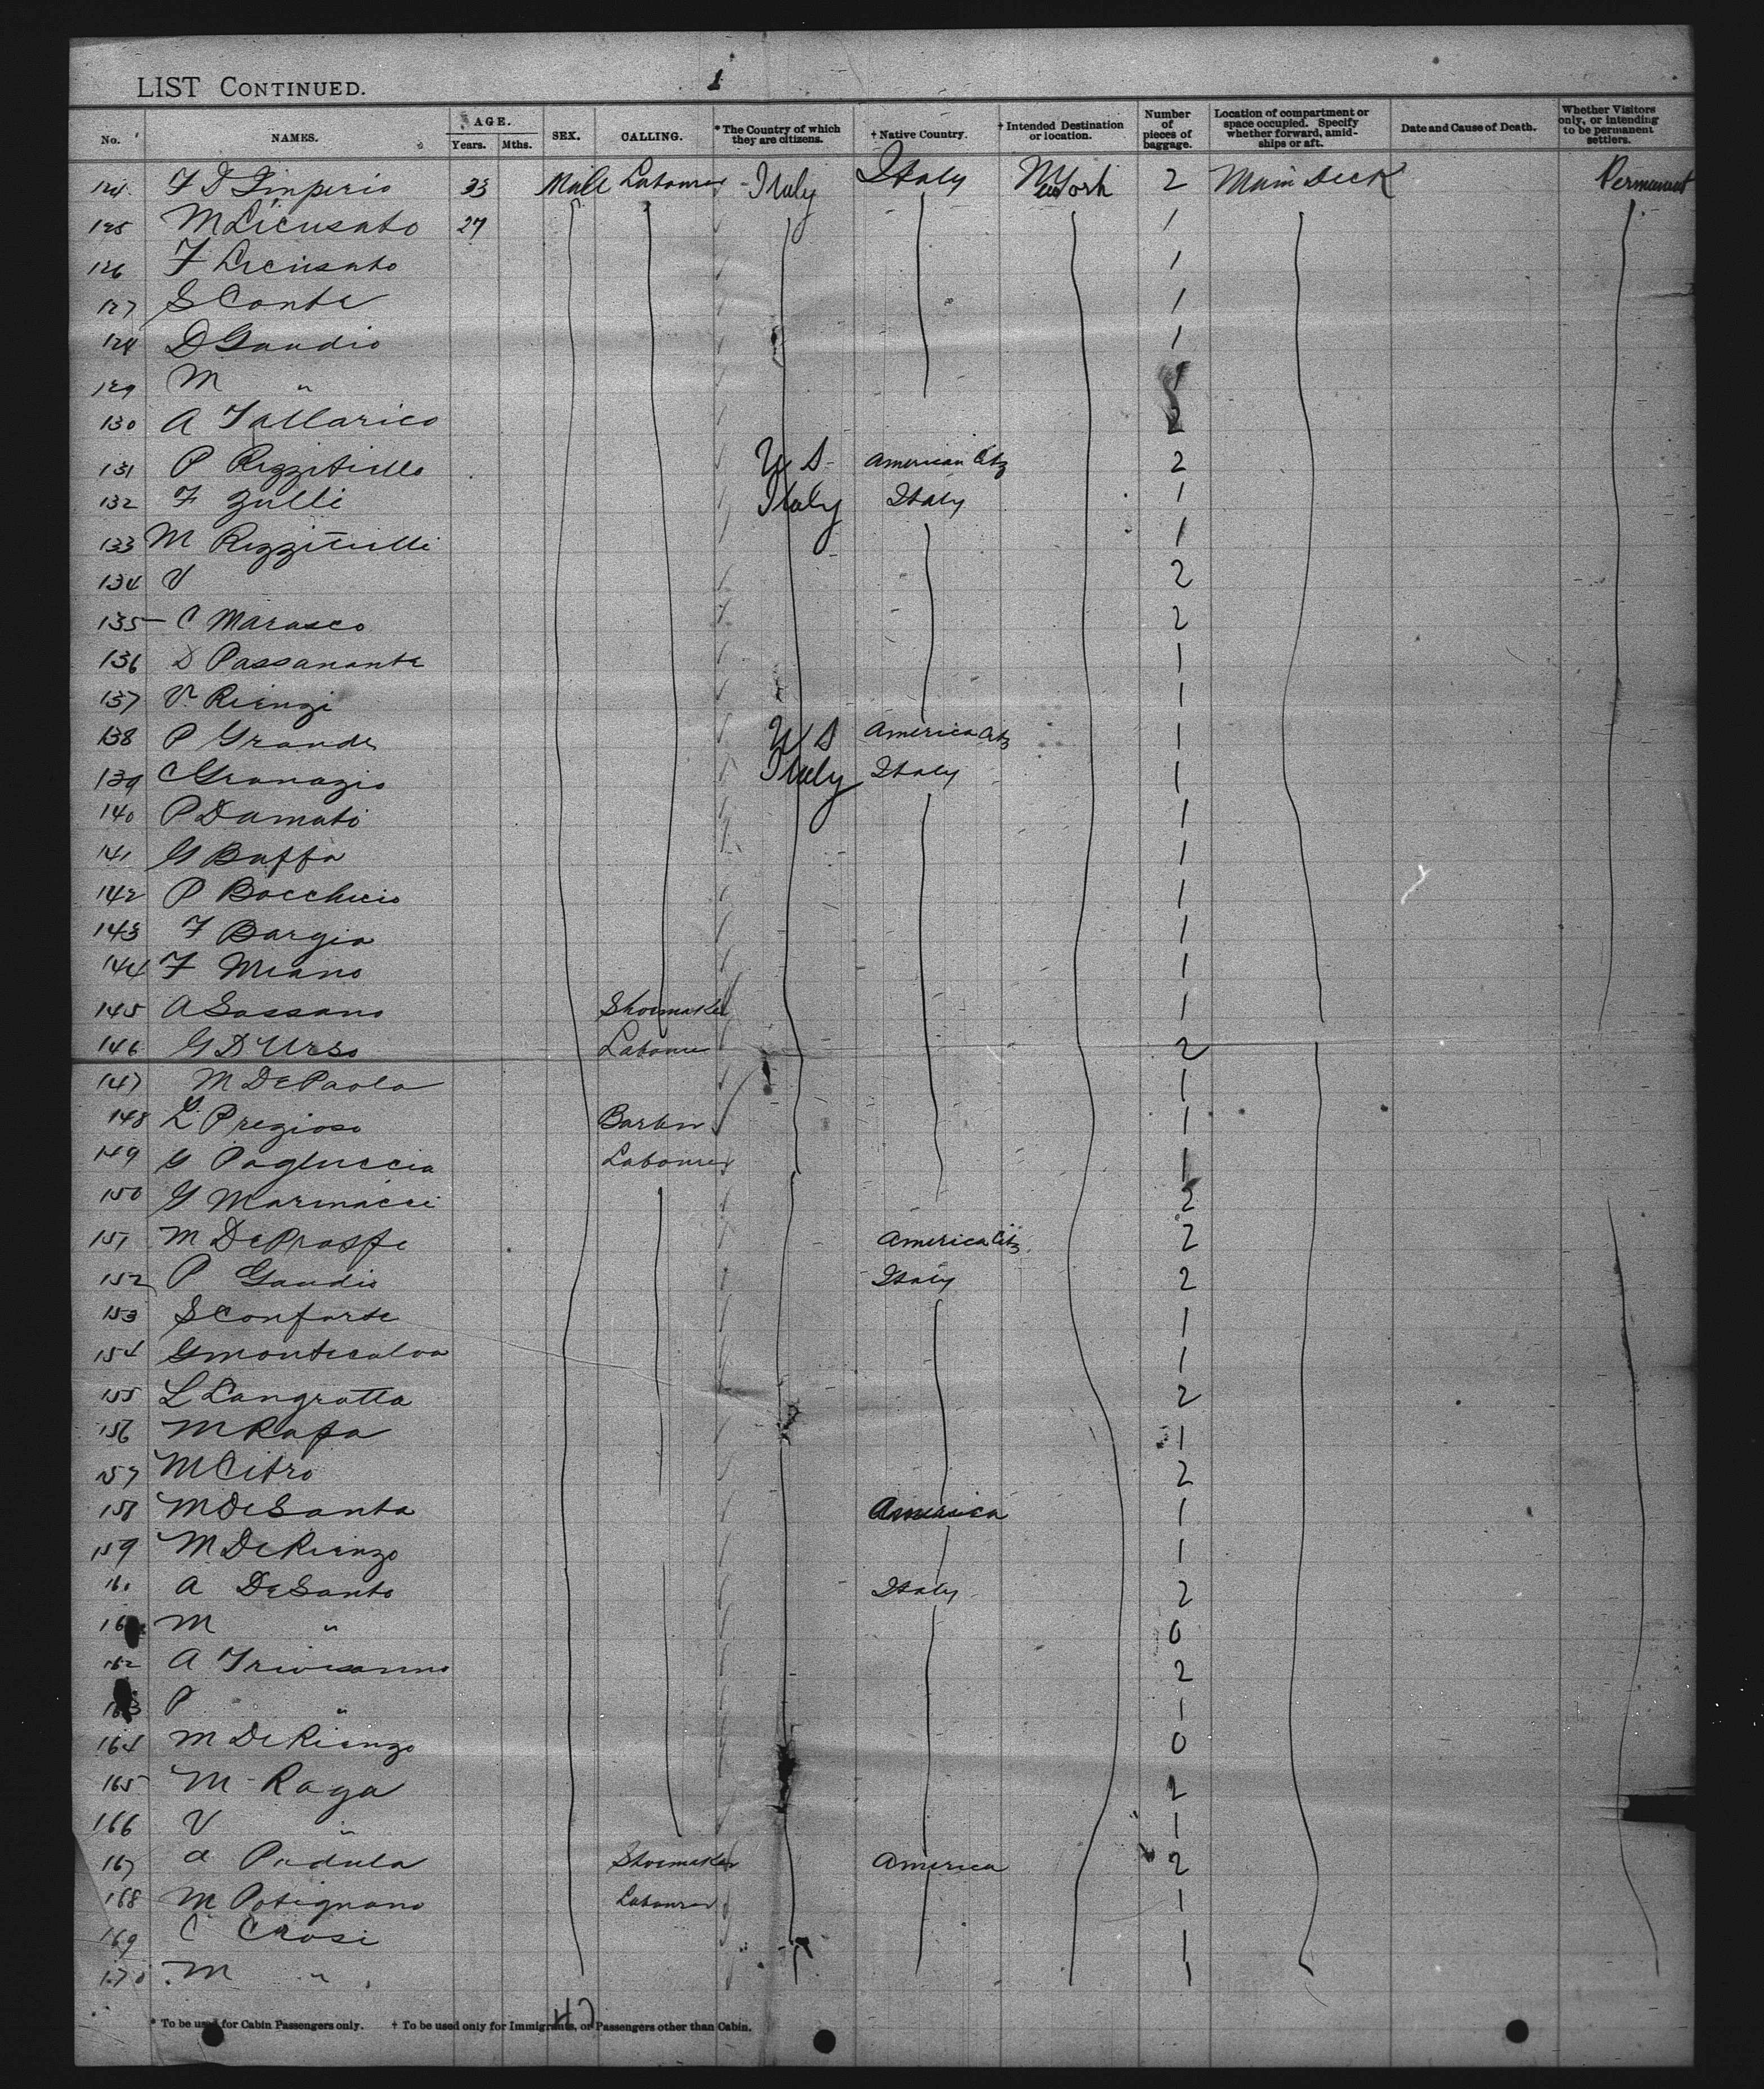 1
LIST CONTINUED.
No. NAMES. AGE. Years. Mths. SEX. CALLING. * The Country of which they are citizens. † Native Country. † Intended Destination or location. Number of pieces of baggage. Location of compartment or space occupied. Specify whether forward, amidships or aft. Date and Cause of Death. Whether Visitors only, or intending to be permanent settlers.
124 F D Imperio 33 Male Labourer Italy Italy N York 2 Main Deck Permanent
125 M Licusato 27 1
126 F Licusato 1
127 S Conte 1
128 D Gaudio 1
129 M " 1
130 A Tallarico 2
131 P Rizzitiello U S American Citz 2
132 F Zulli Italy Italy 1
133 M Rizzitielli 1
134 V 2
135 C Marasco 2
136 D Passanante 1
137 V Rienzi 1
138 P Grande U S America Citz 1
139 C Granazio Italy Italy 1
140 P Damato 1
141 G Buffa 1
142 P Bocchicio 1
143 F Bargia 1
144 F Miano 1
145 A Sassano Shoemaker 1
146 G D Urso Labourer 2
147 M De Paola 1
148 L Pregioso Barber 1
149 G Pagluccia Labourer 1
150 G Marinacci 2
151 M De America Citz 2
152 P Gaudio Italy 2
153 S Conforte 1
154 G Montecalvo 1
155 L Langrotta 2
156 M Rafa 1
157 M Citro 2
158 M De Santa America 1
159 M De Rienzo 1
160 A De Santo Italy 2
161 M " 0
162 A Trivisanno 2
163 P " 1
164 M De Rienzo 0
165 M Raga 2
166 V " 1
167 A Padula Shoemaker America 2
168 M Potignano Labourer 1
169 C Crosi 1
170 M " 1
47
* To be used for Cabin Passengers only. † To be used only for Immigrants, or Passengers other than Cabin.